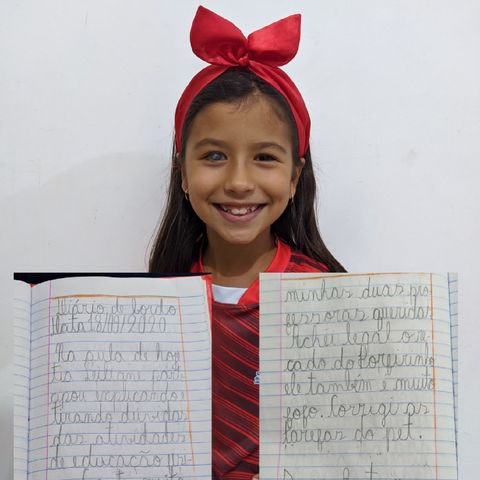 Diário de bordo
Data 13/10/2020.
Na aula de hoje
tia
cipou explicando,
tirando dúvidas
das atividades
de educação
minhas duas pro
fessoras queridas
Achei legal o re
cado do Porfirinho
ele também é muito
fofo. Corrigi as
tarefas do pet.